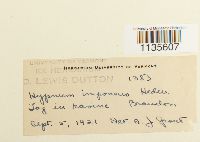 University of Vermont
1135607
HERBARIUM UNIVERSITY OF VERMONT
EX HERB
D. LEWIS DUTTON
1383
Hypnum imponens Hedw.
Log in ravine Brandon
Sept. 5, 1921 Det A. J. Grout